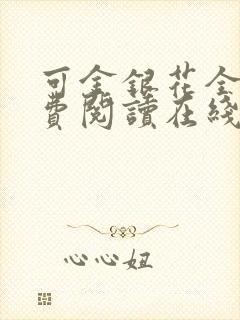 可金銀花全
費閱讀在綫
心心妞